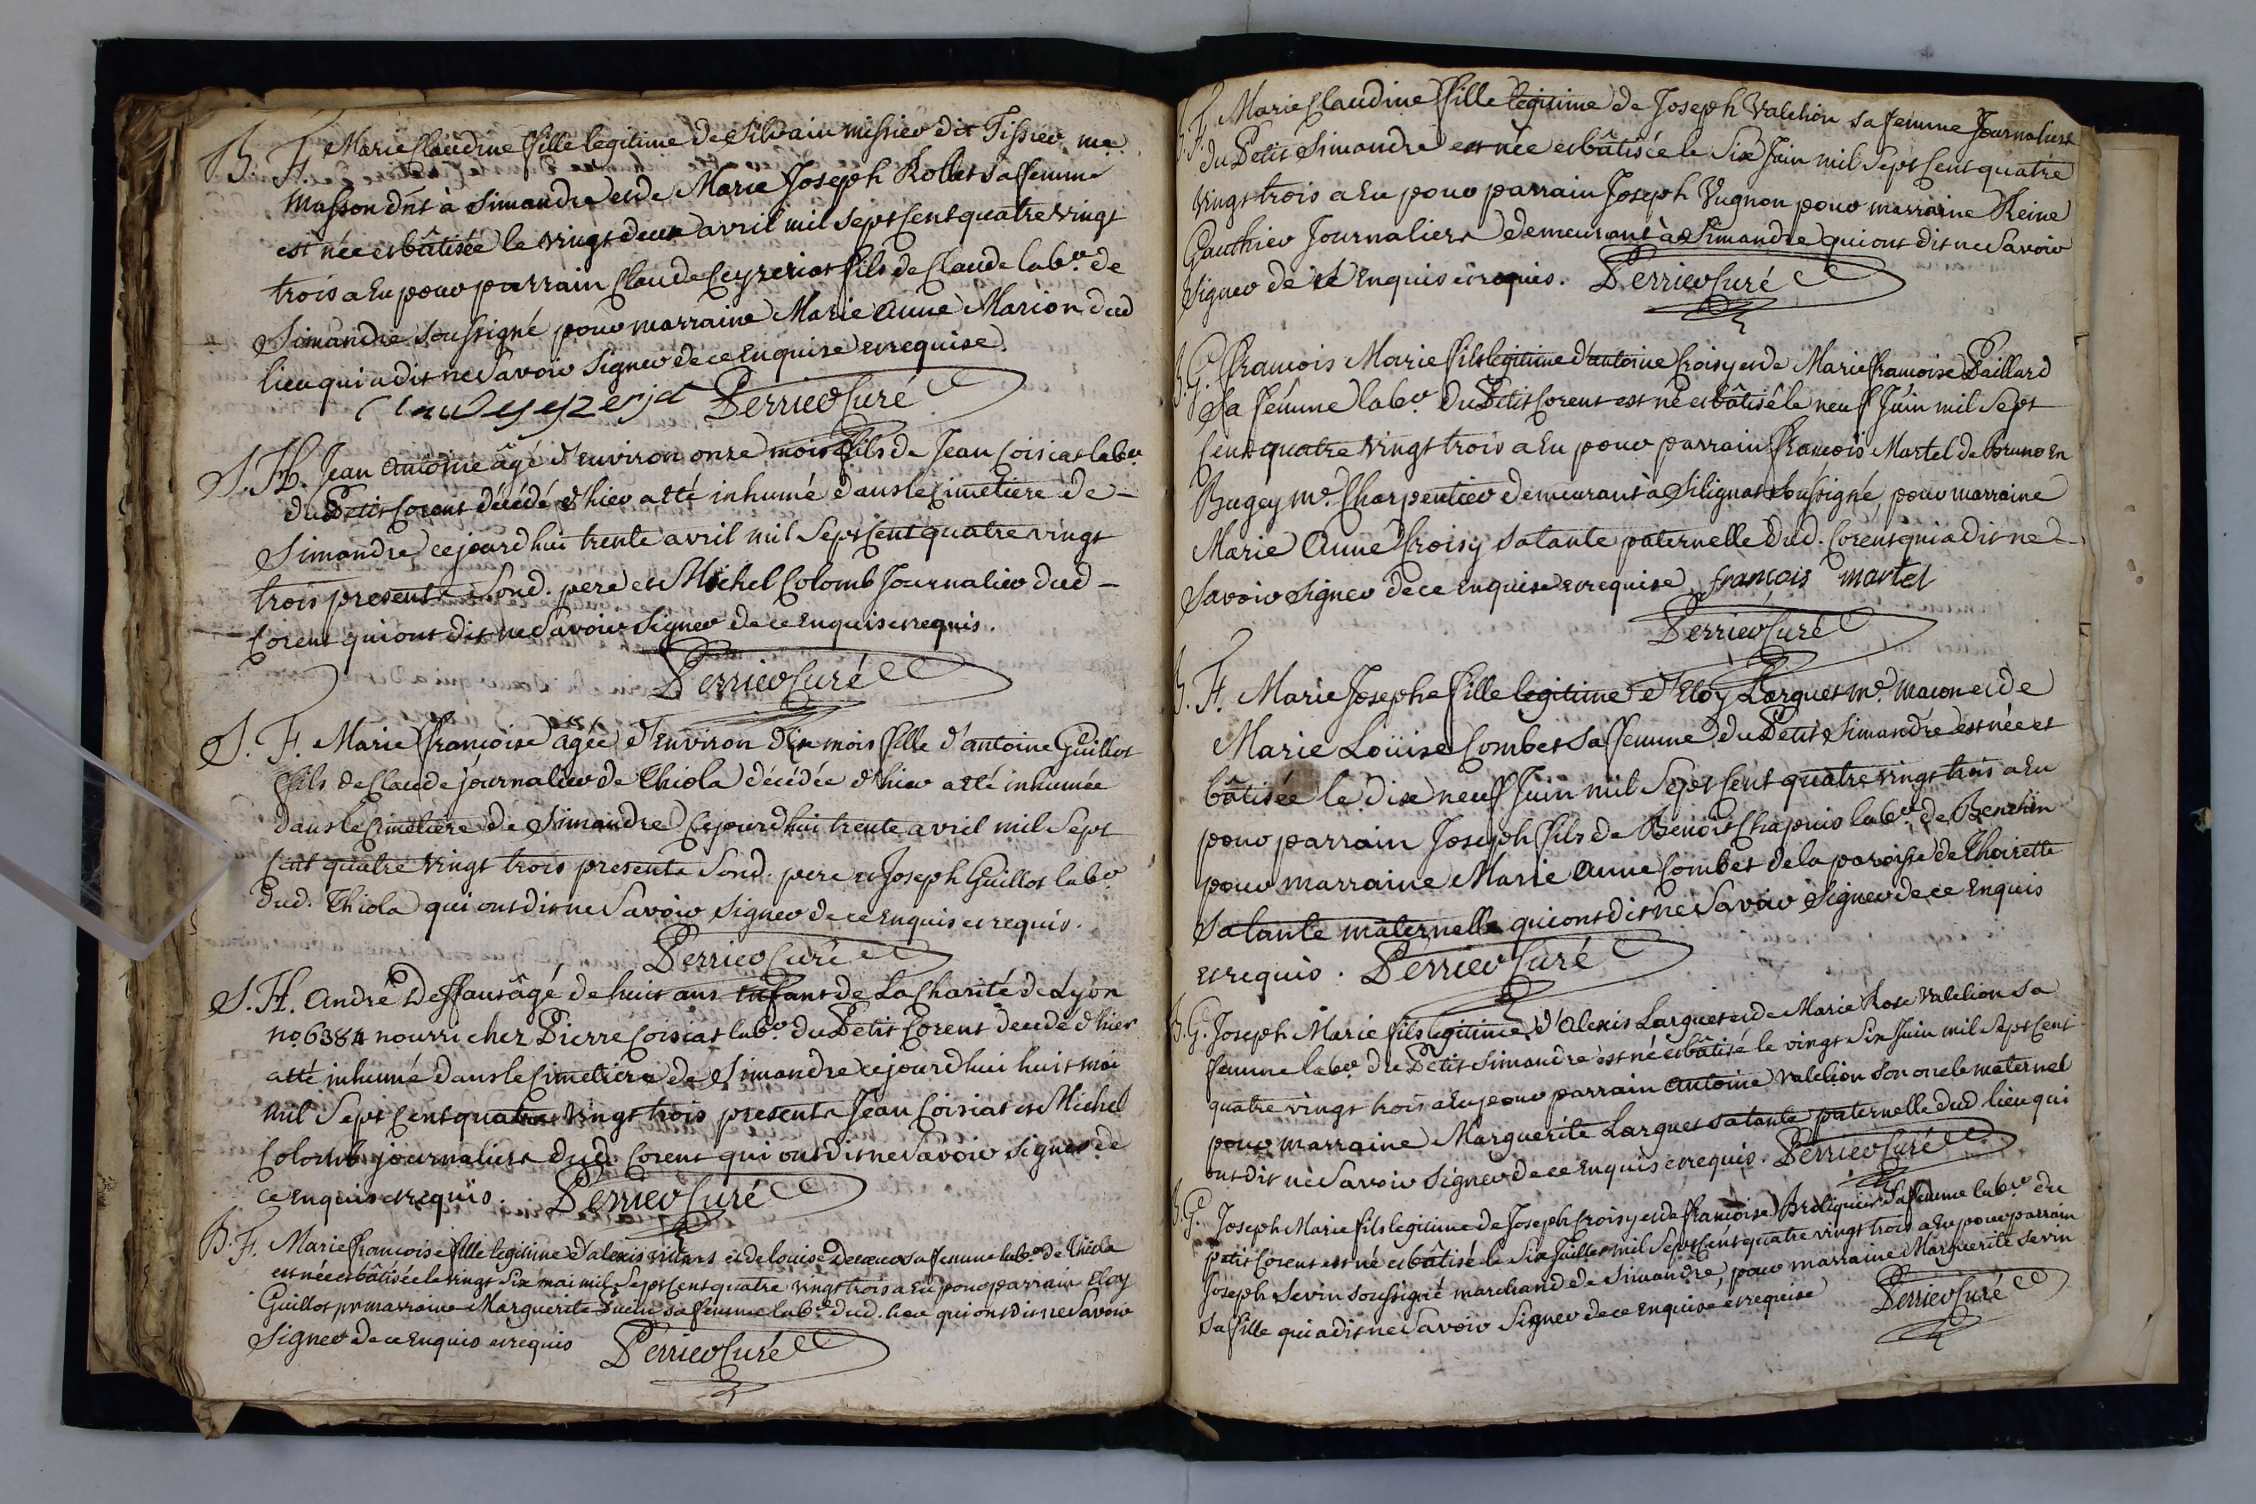 B. F. Marie Claudine fille legitime de Silvain Missier dit Tissier me.
masson dnt à Simandre et de Marie Joseph Rollet sa femme
est née et bâtisée le vingt deux avril mil sept cent quatre vingt
trois a Eu pour parrain Claude Ceyzeriat fils de Claude labr. de
Simandre soussigné pour marraine Marie Anne Marion dud
lieu qui a dit ne savoir signer de ce Enquise et requise.
Perrier Curé
S. H. Jean Antoine âgé d'environ onze mois fils de Jean Coisiat labr.
du Petit Corent décédé d'hier a été inhumé dans le Cimetiere de
Simandre ce jourd'hui trente avril mil sept cent quatre vingt
trois presents Sond. pere et Michel Colomb Journalier dud
Corent qui ont dit ne savoir signer de ce Enquis et requis.
Perrier Curé
S. F. Marie françoise âgée d'environ dix mois fille d'antoine Guillot
fils de Claude journalier de Thiola décédée d'hier a été inhumée
dans le Cimetiere de Simandre Ce jourd'hui trente avril mil Sept
Cent quatre vingt trois presents Sond. pere et Joseph Guillot labr.
dud. Thiola qui ont dit ne Savoir signer de ce Enquis et requis.
Perrier Curé
S. H. André Deffaut âgé de huit ans Enfant de La Charité de Lyon
no. 6384 nourri chez Pierre Coisiat labr. du Petit Corent décédé d'hier
a été inhumé dans le Cimetiere de Simandre ce jourd'hui huit mai
mil Sept Cent quatre vingt trois presents Jean Coisiat et Michel
Colomb journaliers dud. Corent qui ont dit ne Savoir signer de
ce Enquis et requis. Perrier Curé
B. F. Marie françoise fille legitime d'alexis et de louise sa femme labr. de Thiola
est née et bâtisée le vingt Six mai mil Sept Cent quatre vingt trois a Eu pour parrain Eloy
Guillot pr marraine Marguerite sa femme labrs. dud. lieu qui ont dit ne Savoir
Signer de ce Enquis et requis Perrier Curé
B. F. Marie Claudine fille legitime de Joseph Valelion sa femme Journaliers
du Petit Simandre est née et bâtisée le Six Juin mil Sept Cent quatre
vingt trois a Eu pour parrain Joseph Vugnon pour marraine Reine
Gauthier Journaliers demeurant à Simandre qui ont dit ne Savoir
Signer de ce Enquis et requis. Perrier Curé
B. G. François Marie fils legitime d'antoine Croisy et de Marie françoise Paillard
Sa femme labr. du Petit Corent est né et bâtisé le neuf Juin mil Sept
Cent quatre vingt trois a Eu pour parrain françois Martel de Bruno En
Bugey me. Charpentier demeurant à Silignat soussigné, pour marraine
Marie Anne Croisy sa tante paternelle dud. Corent qui a dit ne
Savoir signer de ce Enquise et requise françois martel
Perrier Curé
B. F. Marie Josephe fille legitime d'Eloy Larguet me. macon et de
Marie Loüise Combet sa femme du Petit Simandre est née et
bâtisée le dix neuf Juin mil Sept Cent quatre vingt trois a Eu
pour parrain Joseph fils de Benoit Chapuis labr. de
pour marraine Marie Anne Combet de la paroisse de Thoirette
sa tante maternelle qui ont dit ne Savoir Signer de ce Enquis
et requis. Perrier Curé
B. G. Joseph Marie fils legitime d'Alexis Larguet et de Marie Rose Valelion sa
femme labr. du Petit Simandre est né et bâtisé le vingt Six Juin mil Sept Cent
quatre vingt trois a Eu pour parrain Antoine Valelion Son oncle maternel
pour marraine Marguerite Larguet sa tante paternelle dud lieu qui
ont dit ne Savoir signer de ce Enquis et requis. Perrier Curé
B. G. Joseph Marie fils legitime de Joseph Croisy et de françoise Breliquier sa femme labr. du
petit Corent est né et bâtisé le Six Juillet mil Sept Cent quatre vingt trois a Eu pour parrain
Joseph Sevin soussigné marchand de Simandre, pour marraine Marguerite Sevin
Sa fille qui a dit ne Savoir Signer de ce Enquise et requise Perrier Curé